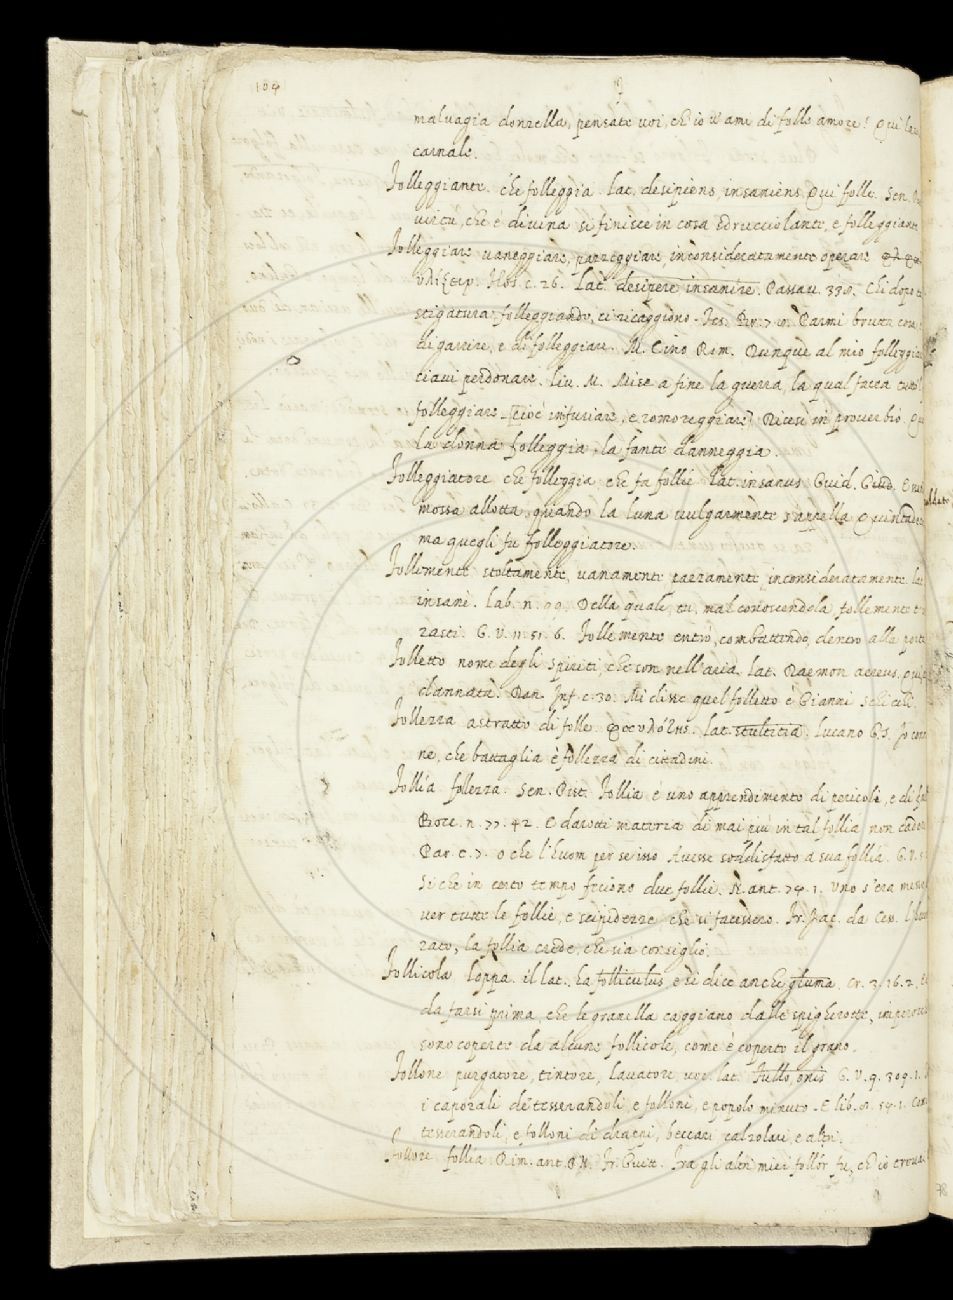 164
malvagia donzella, pensate voi, ch'io v'ami di folle amore! Qui
carnale.
Folleggiante. che folleggia. lat. desipiens, insaniens. Qui folle. Sen.
virtù, che è divina si finisce in cosa sdrucciolante, e folleggiante
Folleggiare vaneggiare, pazzeggiare, inconsideratamente operare
Lat. desipere insanire. Passav. 330. Chi dopo
folleggiando, ci ricaggiono. Parmi brutta
di garrire, e di folleggiare. M. Cino Rim. Dunque al mio folleggiar
perdonare. Liv. M. Mise a fine la guerra, la qual facea
folleggiare [cioè infuriare, e romoreggiare] Dicesi in proverbio.
La donna folleggia, la fante danneggia.
Folleggiatore che folleggia, che fa follie Lat. insanus Guid. Giud. E
mossa allotta, quando la luna vulgarmente s'appella Quintadecima
ma quegli fu folleggiatore.
Follemente stoltamente, vanamente pazzamente, inconsideratamente. lat.
insanè. Lab. n. Della quale, tu, mal conoscendola follemente
G. V. 11. 51. 6. Follemente entrò, combattendo, dentro alla porta
Folletto nome degli spiriti, che son nell'aria. lat. Daemon aereus.
dannata. Dan. Inf. c. 30. Mi disse quel folletto è Gianni
Follezza astratto di folle. lat. stultitia. Lucano
ne, che battaglia è follezza di cittadini.
Follia follezza. Sen. Pist. Follia è uno apprendimento di pericoli, e di
Bocc. n. 77. 42. E datotti materia di mai più in tal follia non cader
Par. c. 7. o che l'huom per se isso Avesse soddisfatto a sua follia. G. V.
Si che in certo tempo feciono due follie. N. ant. 74. 1. Uno s'era messo
ver tutte le follie, e scipidezze che vi facessero. Fr. Jac. da Ces.
la follia crede, che sia consiglio.
Follicola Loppa. il lat. la folliculus e si dice anche gluma. Cr. 3. 16. 2.
da farsi prima, che le granella caggiano dalle spigherotte, imperocchè
sono coperte da alcune follicole, come è coperto il grano.
Follone purgatore, tintore, lavatore, voc. lat. Fullo, onis G. V. 9. 309. 1.
i caporali de tesserandoli, e folloni, e popolo minuto. E lib. 54. 1. Con
tesserandoli, e folloni di drappi, beccai, calzolai, e altri.
Follore follia Rim. ant. P. N. Fr. Guitt. Fra gli altri miei follor fu, ch'io trovai